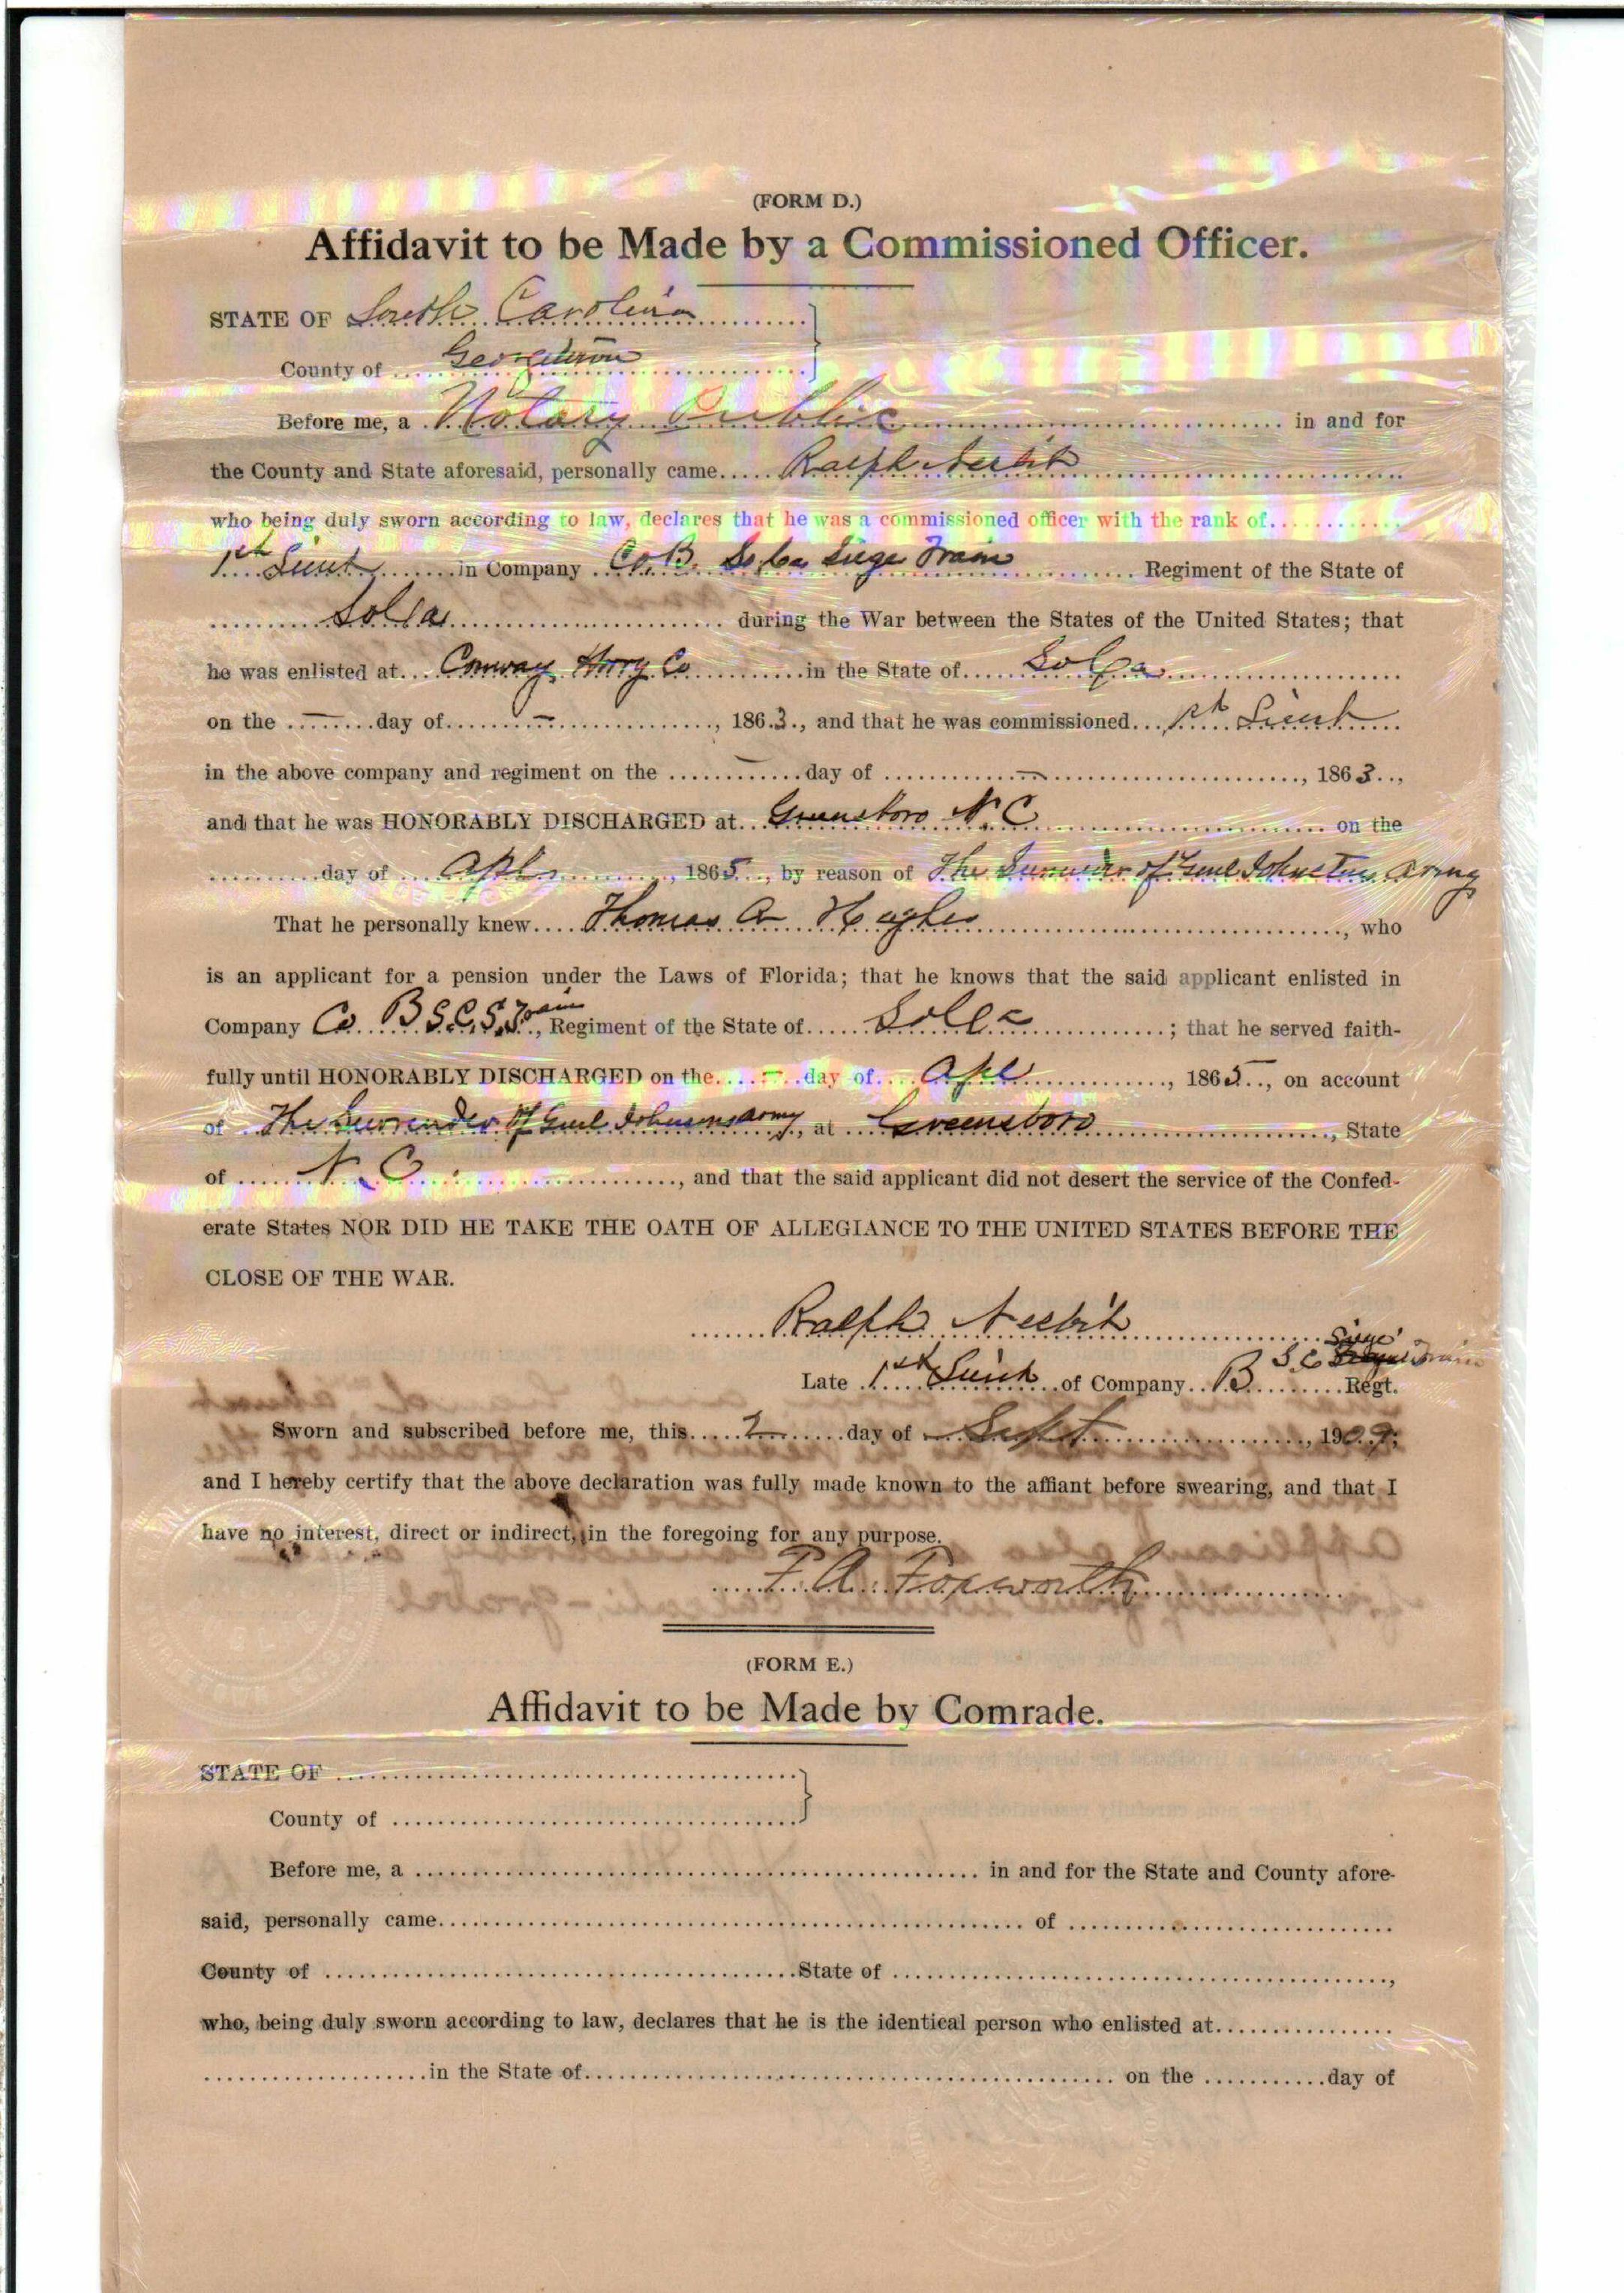 (FORM D.)
Affidavit to be Made by a Commissioned Officer.
STATE OF South Carolina
County of Georgetown
Before me, a Notary Public in and for
the County and State aforesaid, personally came Ralph Nesbit
who being duly sworn according to law, declares that he was a commissioned officer with the rank of
1st Lieut in Company Co. B. So Ca Siege Train Regiment of the State of
So Ca during the War between the States of the United States; that
he was enlisted at Conway, Horry Co in the State of So Ca
on the — day of —, 1863, and that he was commissioned 1st Lieut
in the above company and regiment on the — day of —, 1863,
and that he was HONORABLY DISCHARGED at Greensboro N.C on the
day of Apl, 1865, by reason of The Surrender of Genl Johnston army
That he personally knew Thomas A Hughes, who
is an applicant for a pension under the Laws of Florida; that he knows that the said applicant enlisted in
Company Co B S.C.S. Train, Regiment of the State of So Ca; that he served faith-
fully until HONORABLY DISCHARGED on the — day of Apl, 1865, on account
of The Surrender of Genl Johnsons army, at Greensboro, State
of N.C., and that the said applicant did not desert the service of the Confed-
erate States NOR DID HE TAKE THE OATH OF ALLEGIANCE TO THE UNITED STATES BEFORE THE
CLOSE OF THE WAR.
Ralph Nesbit
Late 1st Lieut of Company B S.C Siege Train Regt.
Sworn and subscribed before me, this 2 day of Sept, 1909;
and I hereby certify that the above declaration was fully made known to the affiant before swearing, and that I
have no interest, direct or indirect, in the foregoing for any purpose.
F. A. Foxworth
(FORM E.)
Affidavit to be Made by Comrade.
STATE OF
County of
Before me, a in and for the State and County afore-
said, personally came of
County of State of ,
who, being duly sworn according to law, declares that he is the identical person who enlisted at
in the State of on the day of